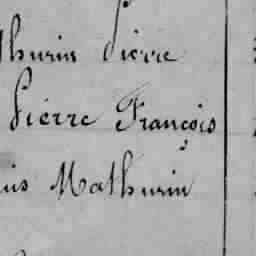 thurin Pierre
Pierre François
uis Mathurin